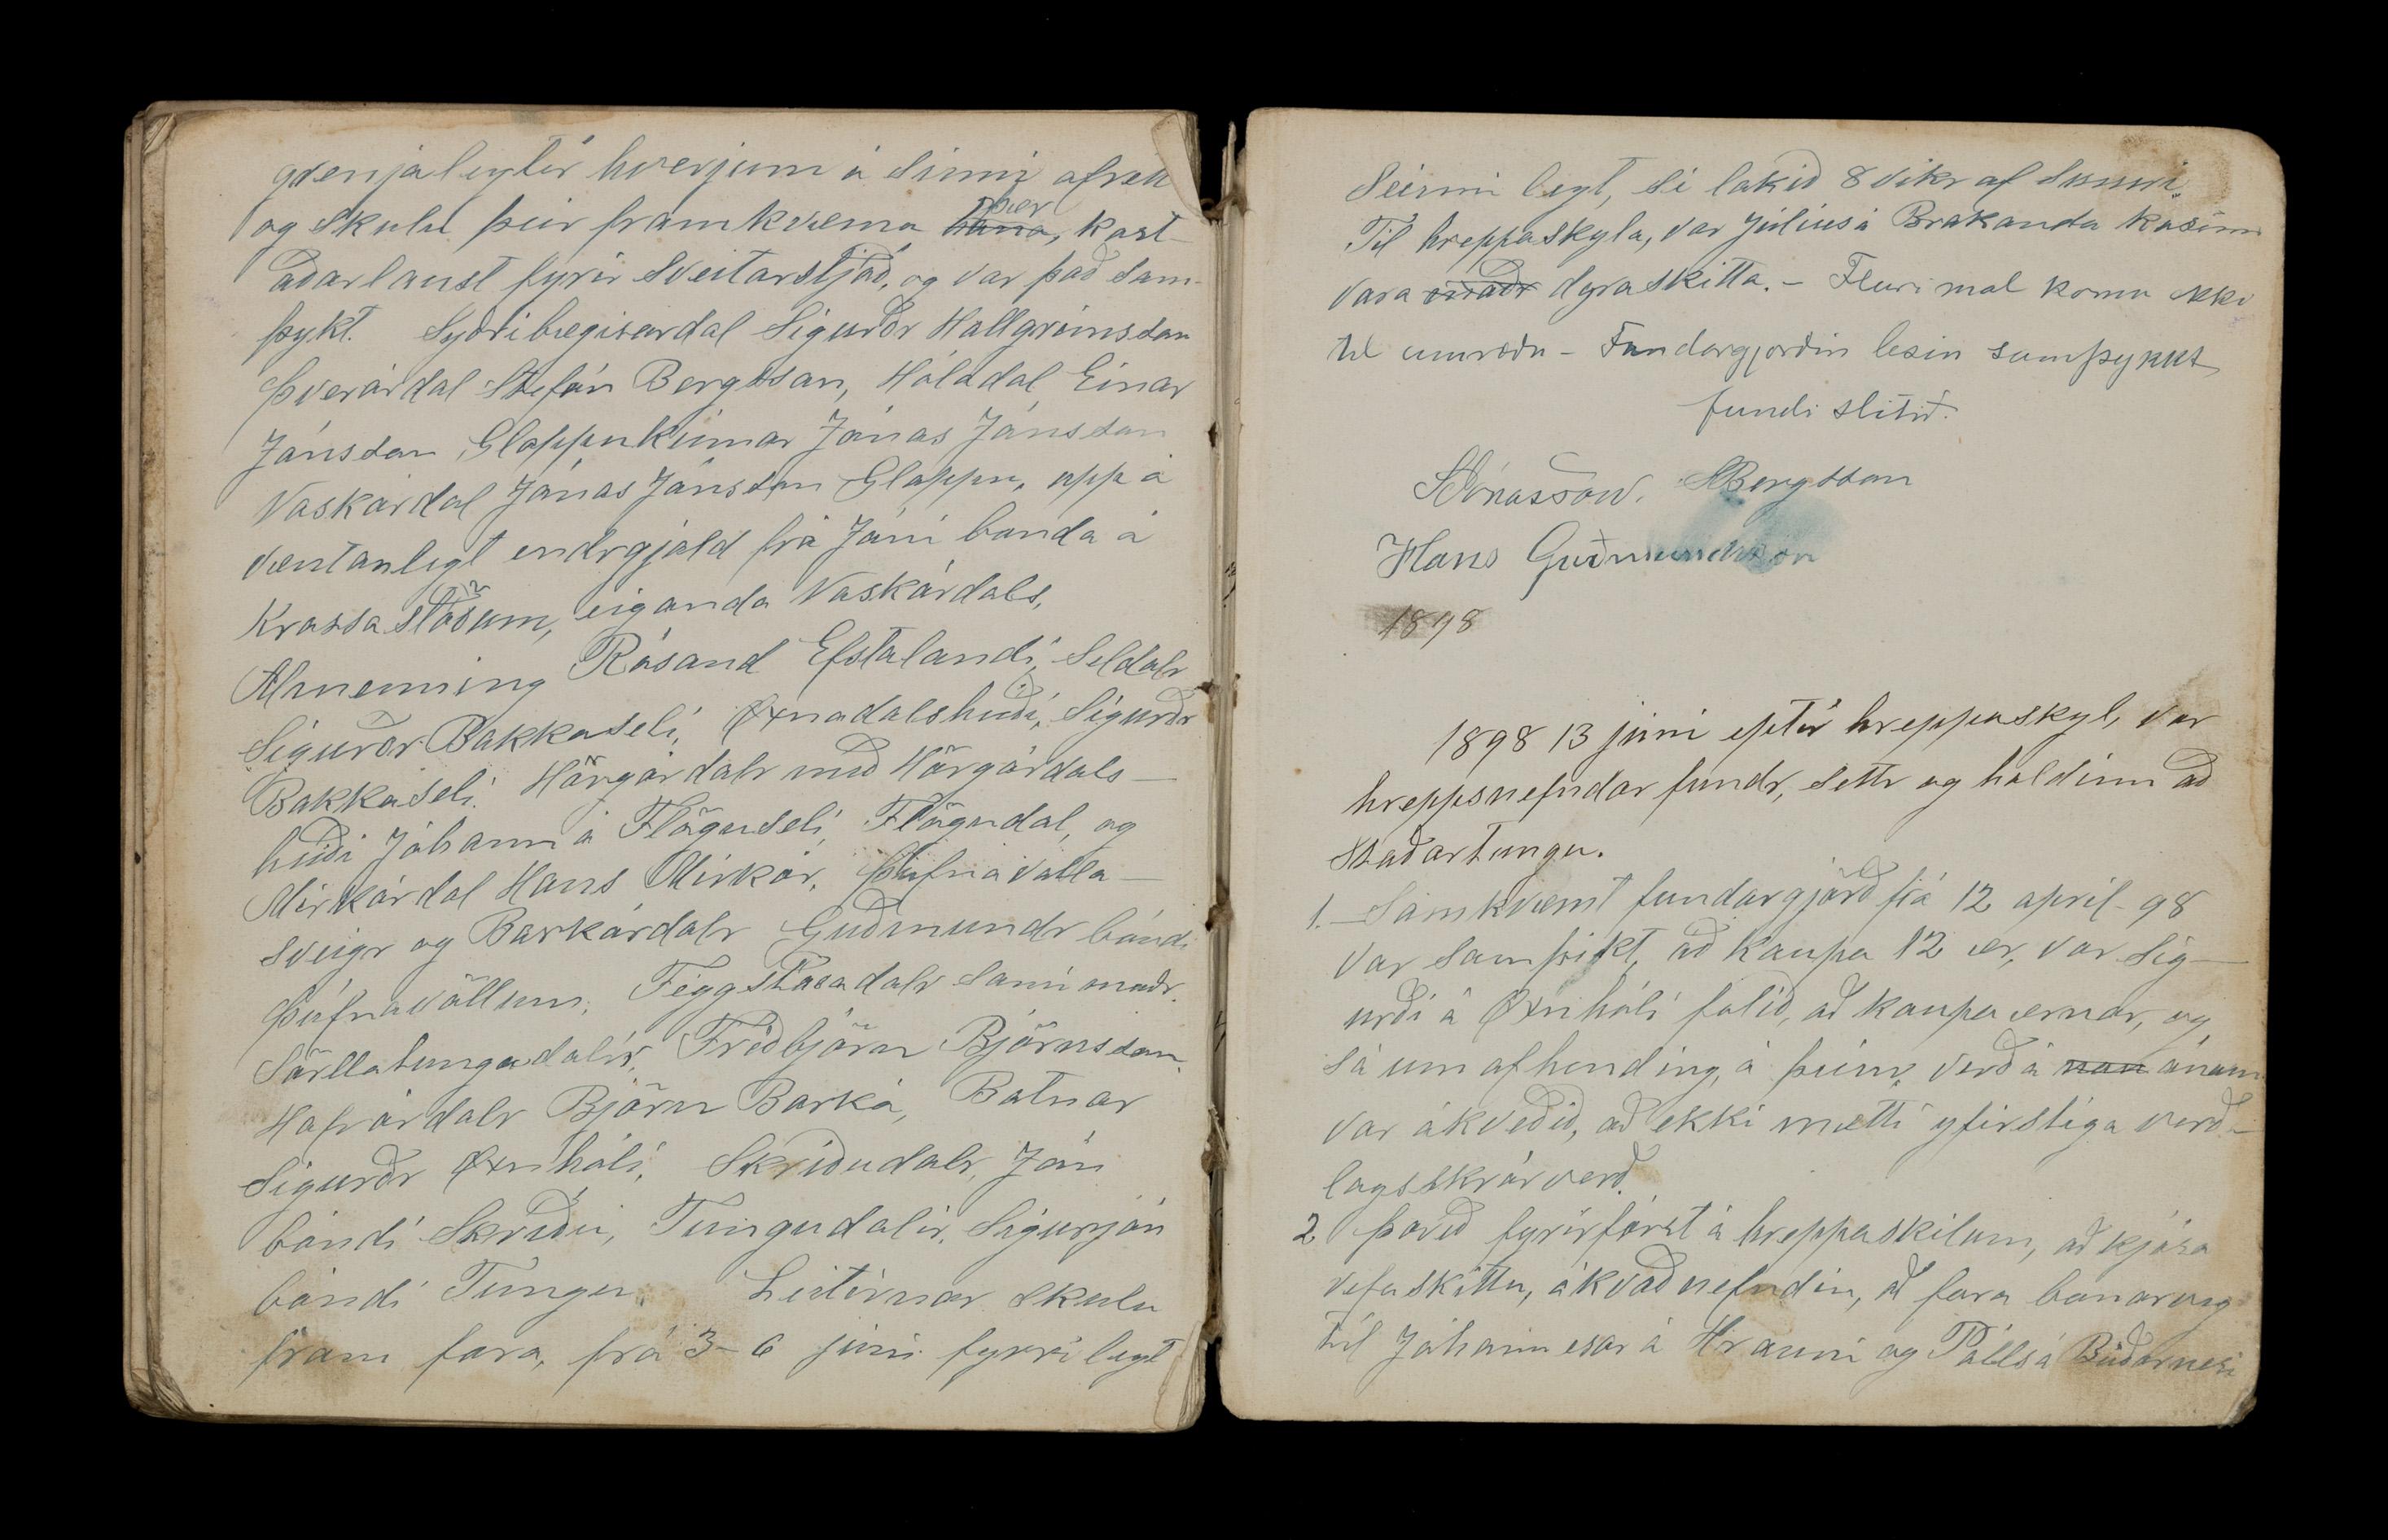 grenjaleytir hverjum á sinni afrétt
og skulu þeir framkvæma þær, kost-
aðarlaust fyrir sveitarstjóð, og var það sam-
þykt. Syðribægisardal Sigurðr Hallgrímsson
Þverárdal Stefán Bergsson, Hóladal Einar
Jónsson, Gloppukinnar Jónas Jónsson
Vaskárdal Jónas Jónsson Gloppu, upp á
væntanlegt endrgjald frá Jóni bonda á
Krossastöðum, eiganda Vaskárdals,
Almenning Rósand Efstalandi, Seldalr
Sigurðr Bakkaseli, Øxnadalsheiði, Sigurðr
Bakkaseli. Hörgárdalr með Hörgárdals-
heiði Jóhann á Flöguseli, Flögudal, og
Mirkárdal Hans Mirkár, Þúfnavalla-
sveigr og Barkárdalr Guðmundr bóndi
Þúfnavöllum, Féeggstaðadalr sami maðr.
Sörllatungudalir, Friðbjörn Björnsson.
Hafrárdalr Björn Barká, Botnar
Sigurðr Øxnhóli, Skriðudalr, Jón
bóndi Skriðu, Tungudalir, Sigurjón
bóndi Tungu. Leitirnar skulu
fram fara, frá 3-6 júni fyrri leyt
Seinni leyt, sé lokið 8 vikr af Sumri.
Til hreppaskyla, var Július á Brakanda kosinn
vara dyraskitta. - Fleiri mal komu ekki
til umrædu - Fundargjorðin lesin samþykkt
fundi slitið.
SJónasson. SBergsson
Hans Guðmundsson
1898
1898 13 júni eptir hreppaskyl, var
hreppsnefndar fundr, settr og haldinn að
Staðartungu.
1. - Samkvæmt fundargjörð frá 12 april - 98
var samþikt, að kaupa 12 ær, var Sig-
urði á Øxnhóli falið, að kaupa ærnar, og
sá um afhending, á þeim, verð á ánum
var ákveðið, að ekki mætti yfirstiga verð-
lagsskrárverð.
2. Þareð fyrirfórst á hreppaskilum, að kjósa
refaskittu, ákvað nefndin, að fara bonarveg
til Jóhannesar á Hrauni og Páls á Búðarnesi